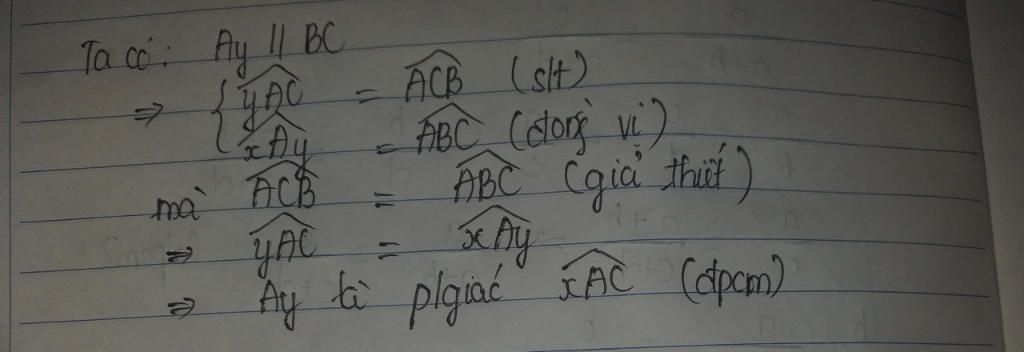 Ta có: Ay // BC
⇒ { yAC = ACB (slt)
xAy = ABC (đồng vị)
mà ACB = ABC (giả thiết)
⇒ yAC = xAy
⇒ Ay là p/giác xAC (đpcm)